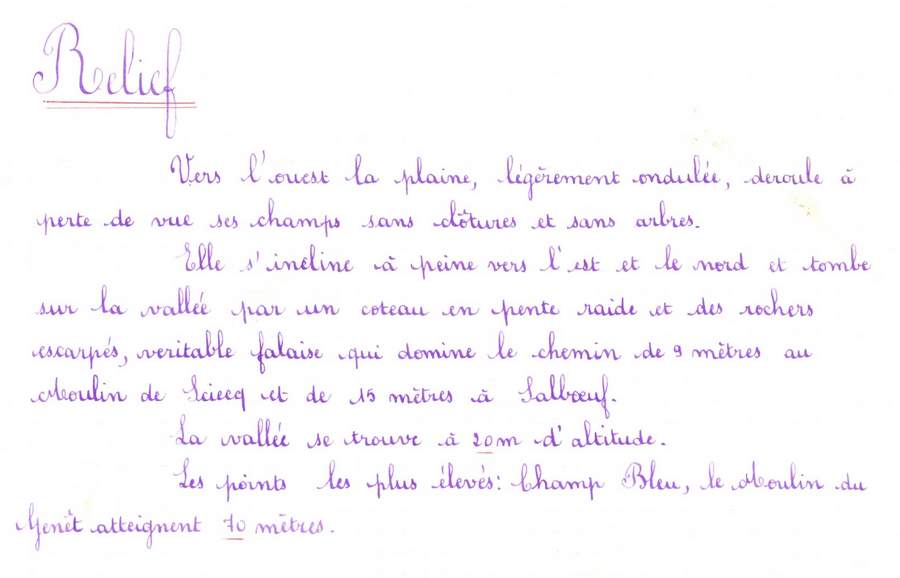 Relief
Vers l'ouest la plaine, légèrement ondulée, deroule à
perte de vue ses champs sans clôtures et sans arbres.
Elle s'incline à peine vers l'est et le nord et tombe
sur la vallée par un coteau en pente raide et des rochers
escarpés, veritable falaise qui domine le chemin de 9 mètres au
Moulin de Sciecq et de 15 mètres à Salbœuf.
La vallée se trouve à 20m d'altitude.
Les points les plus élevés: Champ Bleu, le Moulin du
Genêt atteignent 70 mètres.